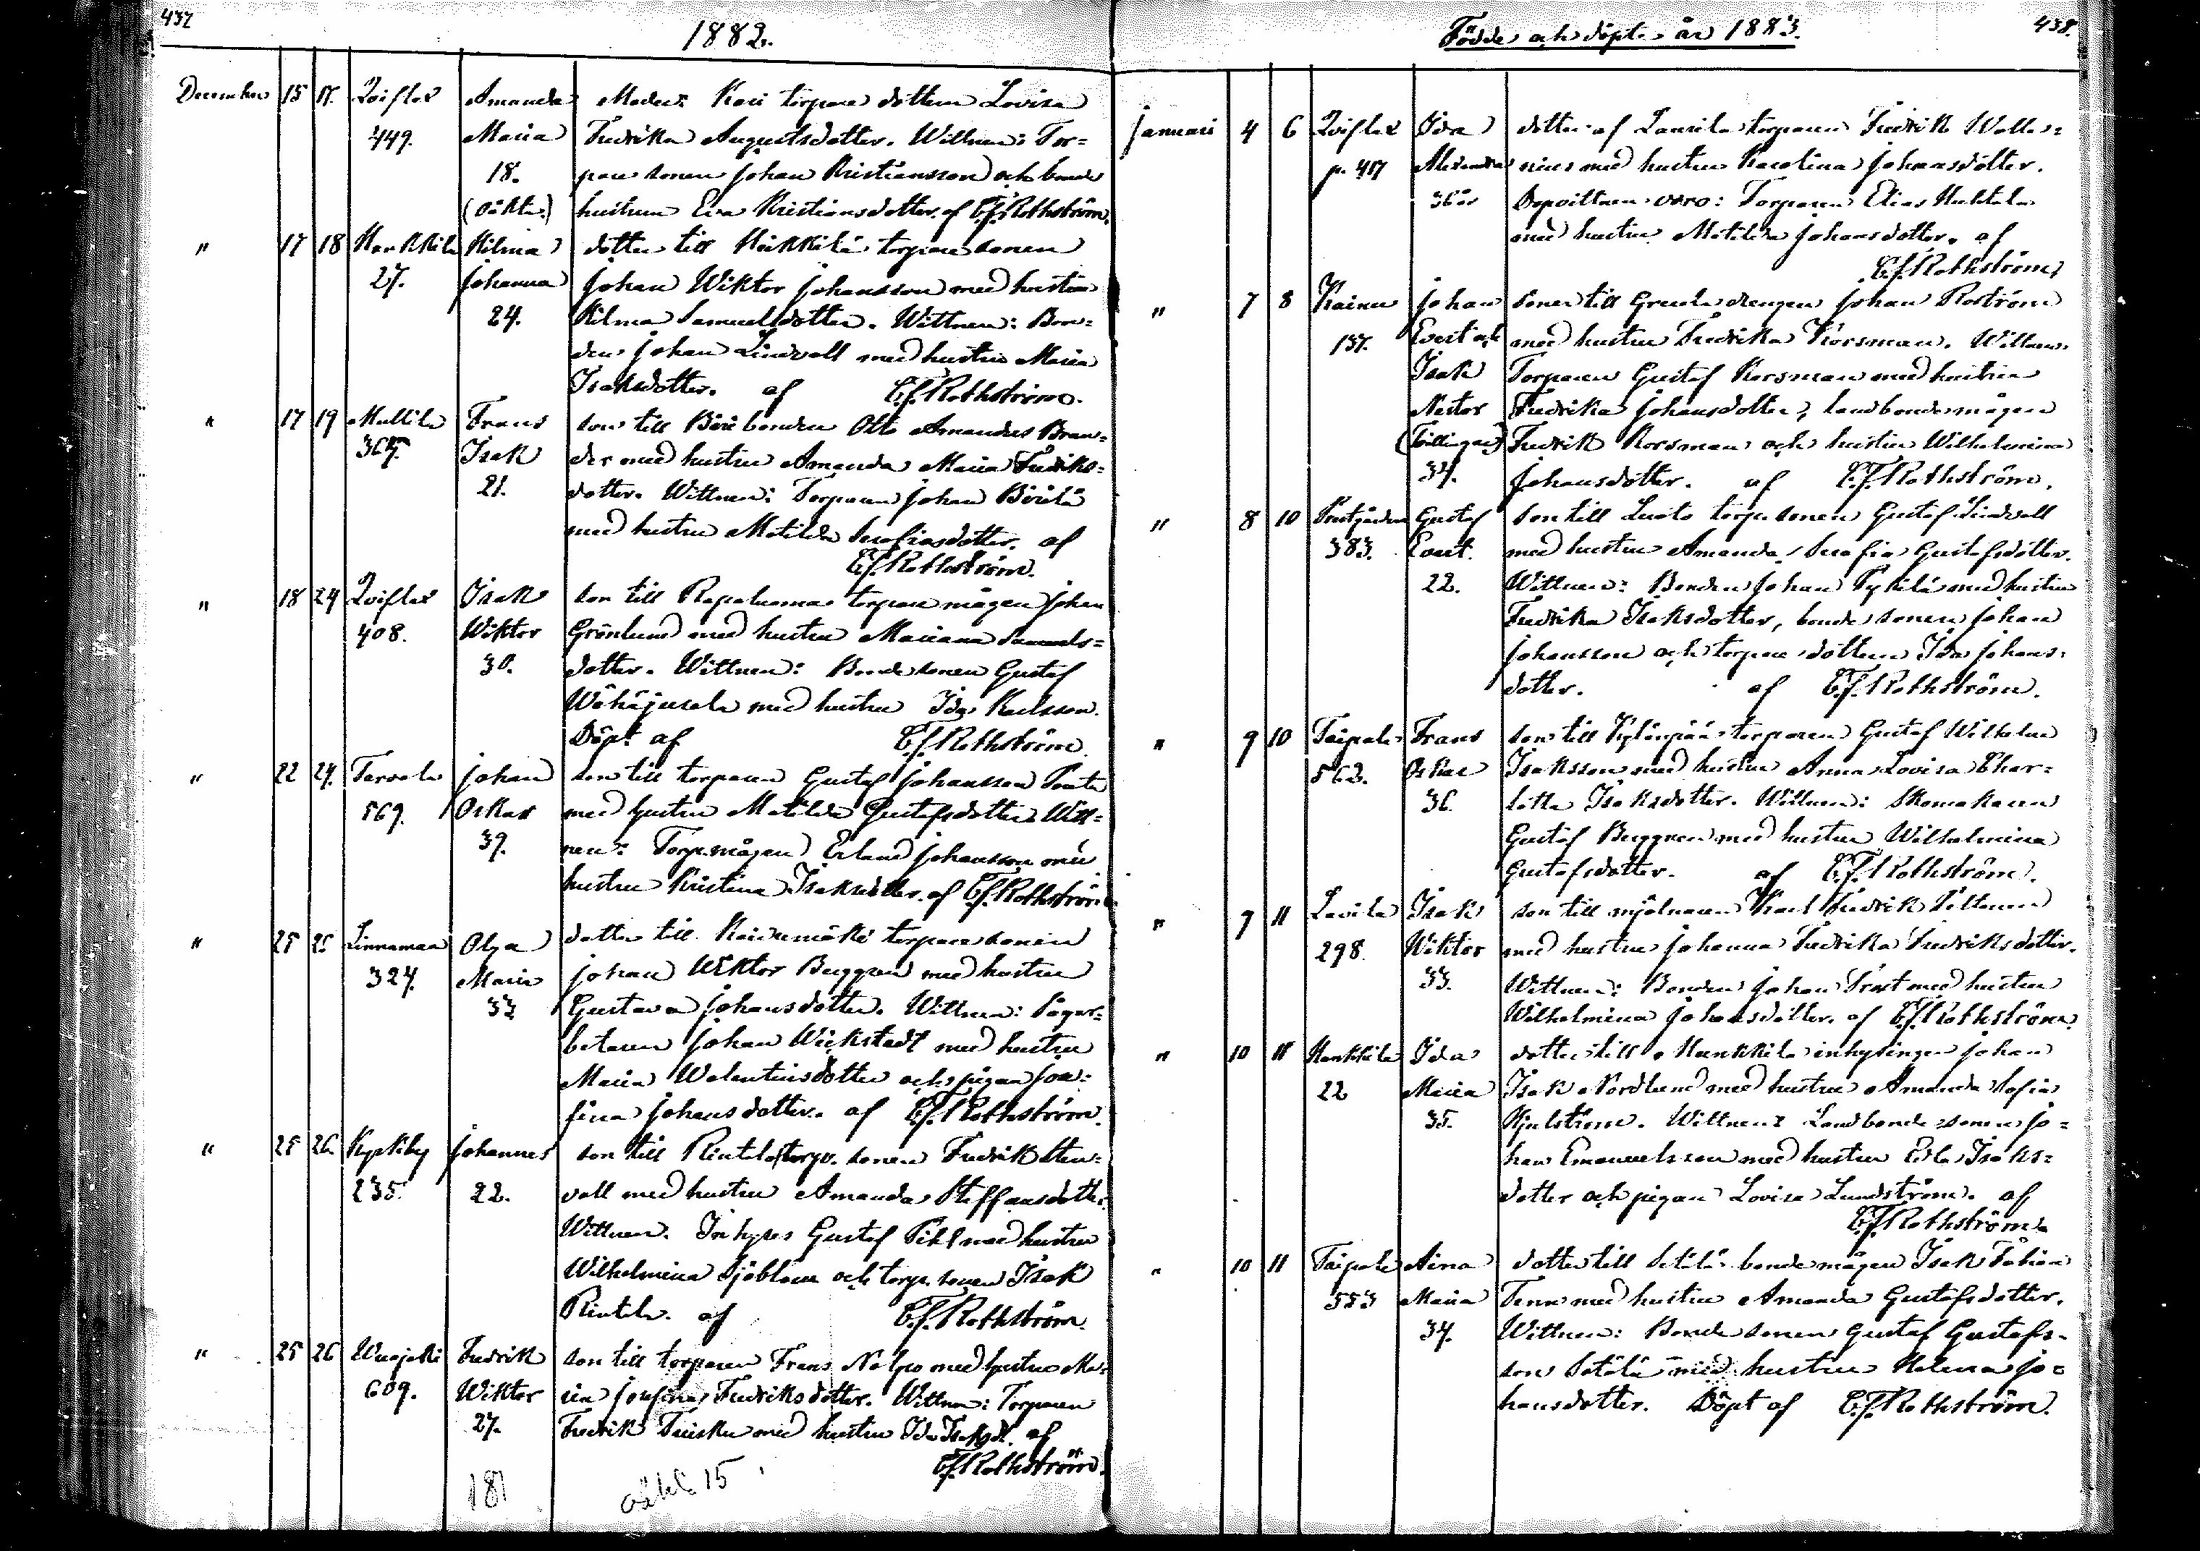 437
1882.
December 15 17. Qviflax Amanda Moder: Kari torpare dottern Lovisa
449. Maria Fredrika Augustsdotter. Wittnen: Tor=
18. pare sonen Johan Kristiansson och bonde
(oäkta) hustrun Eva Kristiansdotter. af C.J. Rothström.
" 17 18 Hankkila Hilma dotter till Heikkilä torpare sonen
27. Johanna Johan Wiktor Johansson med hustru
24. Hilma Samuelsdotter. Wittnen: Bon=
den Johan Lindvall med hustru Maria
Isaksdotter. af C.J. Rothström.
" 17 19 Mullila Frans son till bonden Otto Amandus Bran=
Isak der med hustru Amanda Maria Fredriks=
21. dotter. Wittnen: Torparen Johan
med hustru Matilda Serafiasdotter. af
C.J. Rothström.
" 18 24 Qviflax Isak son till torpare mågen Johan
408. Wiktor Grönlund med hustru Mariana Samuels=
30. dotter. Wittnen: Bonde sonen Gustaf
Wähäjusela med hustru Ida Karlsson.
Döpt af C.J. Rothström.
" 22 24. Tarvola Johan son till torparen Gustaf Johansson
569. Oskar med hustru Matilda Gustafsdotter. Witt=
39. nen: Torp.mågen Erland Johansson med
hustru Kristina Isaksdotter. af C.J. Rothström
" 25 25 Linnamaa Olga dotter till torpare sonen
324. Maria Johan Wiktor Berggren med hustru
33 Gustava Johansdotter. Wittnen: Sågar=
betaren Johan Wickstedt med hustru
Maria Walentinsdotter och pigan Jose=
fina Johansdotter. af C.J. Rothström.
" 25 26. Kyrkby Johannes son till Rintala torp. sonen Fredrik Sten=
235. 22. vall med hustru Amanda Steffansdotter
Wittnen. Inhyses Gustaf med hustru
Wilhelmina Sjöblom och torp. sonen Isak
Rintala. af C.J. Rothström.
" 25 26 Wuojoki Fredrik son till torparen Frans med hustru Ma=
609. Wiktor ria Josefina Fredriksdotter. Wittnen: Torparen
27. Fredrik med hustru Ida Isaksd. af
C.J. Rothström.
181 oäkt. 15
Födde och döpte år 1883. 438.
Januari 4 6 Qviflax Ida dotter af Laurila torparen Fredrik Walle=
p. 417 Alexandra nius med hustru Karolina Johansdotter.
36 år Dopvittnen voro: Torparen Elias Huhtala
med hustru Matilda Johansdotter. af
C.J. Rothström.
" 7 8 Kainu Johan söner till Greula drengen Johan Roström
137. Evert och med hustru Fredrika Korsman. Wittnen.
Isak Torparen Gustaf Korsman med hustru
Nestor Fredrika Johansdotter, landbondemågen
(Tvillingar) Fredrik Korsman och hustru Wilhelmina
34. Johansdotter. af C.J. Rothström.
" 8 10 Prestgården Gustaf son till Lusto torp. sonen Gustaf Lindvall
383. Evert. med hustru Amanda Serafia Gustafsdotter.
22. Wittnen: Bonden Johan Pykilä med hustru
Fredrika Isaksdotter, bonde sonen Johan
Johansson och torpare dottern Ida Johans=
dotter. af C.J. Rothström.
" 9 10 Taipale Frans son till torparen Gustaf Wilhelm
562. Oskar Isaksson med hustru Anna Lovisa Char=
36. lotta Isaksdotter. Wittnen: Skomakaren
Gustaf Berggren med hustru Wilhelmina
Gustafsdotter. af C.J. Rothström.
" 9 11 Lavila Isak son till mjölnaren Karl Fredrik Peltonen
298. Wiktor med hustru Johanna Fredrika Fredriksdotter.
33. Wittnen: Bonden Johan Prost med hustru
Wilhelmina Johansdotter. af C.J. Rothström.
" 10 11 Hankkila Ida dotter till Hankkila inhysingen Johan
22 Maria Isak Nordlund med hustru Amanda Sofia
35. Hjulström. Wittnen: Landbonde sonen Jo=
han Emanuelsson med hustru Eda Isaks=
dotter och pigan Lovisa Lundström. af
C.J. Rothström.
" 10 11 Taipale Aina dotter till Setälä bonde mågen Isak Fabian
553 Maria Tenn med hustru Amanda Gustafsdotter.
34. Wittnen: Bonde sonen Gustaf Gustafs=
son Setälä med hustru Helena Jo=
hansdotter. Döpt af C.J. Rothström.